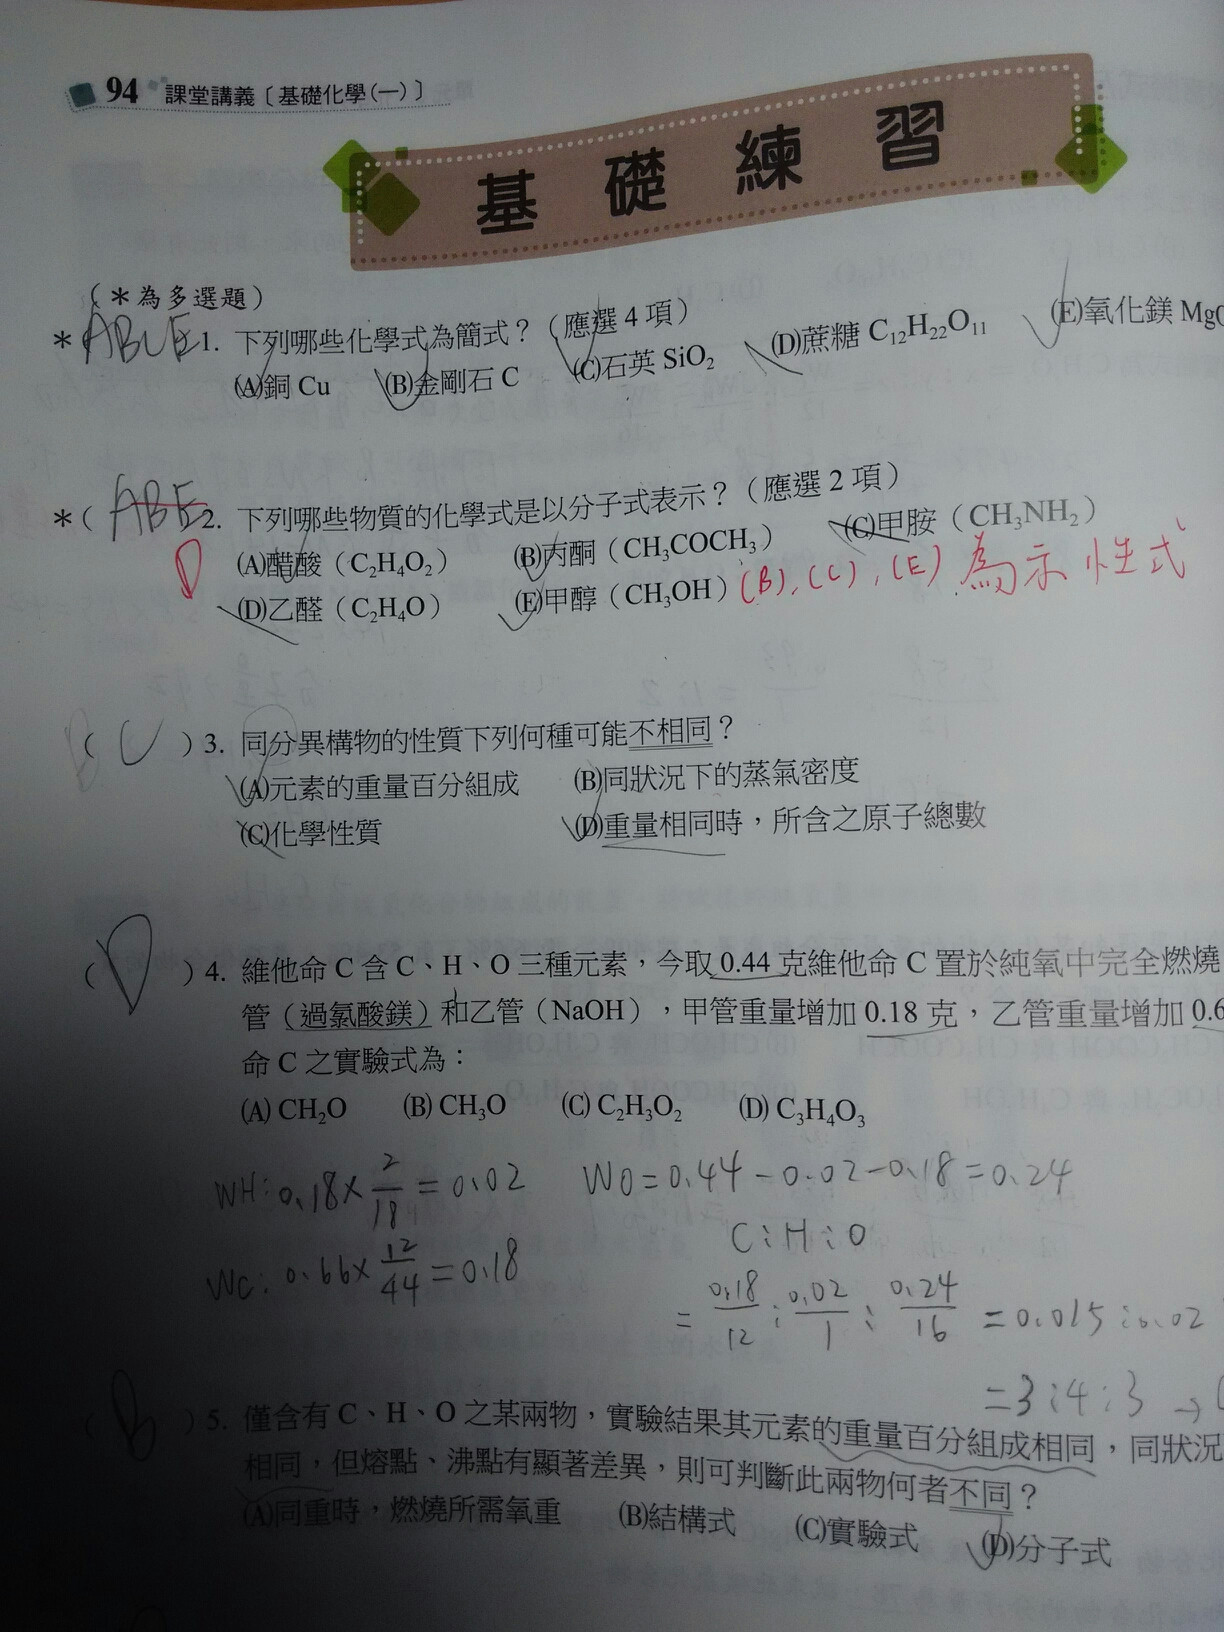 94 課堂講義〔基礎化學(一)〕
基礎練習
(＊為多選題)
＊ABCE 1. 下列哪些化學式為簡式？(應選4項)
(A)銅 Cu (B)金剛石 C (C)石英 SiO₂ (D)蔗糖 C₁₂H₂₂O₁₁ (E)氧化鎂 Mg
＊( ABE 2. 下列哪些物質的化學式是以分子式表示？(應選2項)
D
(A)醋酸(C₂H₄O₂) (B)丙酮(CH₃COCH₃) (C)甲胺(CH₃NH₂)
(D)乙醛(C₂H₄O) (E)甲醇(CH₃OH) (B)、(C)、(E)為示性式
( C ) 3. 同分異構物的性質下列何種可能不相同？
(A)元素的重量百分組成 (B)同狀況下的蒸氣密度
(C)化學性質 (D)重量相同時，所含之原子總數
( D ) 4. 維他命C含C、H、O三種元素，今取0.44克維他命C置於純氧中完全燃燒
管(過氯酸鎂)和乙管(NaOH)，甲管重量增加0.18克，乙管重量增加0.6
命C之實驗式為：
(A) CH₂O (B) CH₃O (C) C₂H₃O₂ (D) C₃H₄O₃
WH: 0.18×2/18=0.02 WO=0.44-0.02-0.18=0.24
C:H:O
WC: 0.66×12/44=0.18
=0.18/12:0.02/1:0.24/16=0.015:0.02
=3:4:3→
( B ) 5. 僅含有C、H、O之某兩物，實驗結果其元素的重量百分組成相同，同狀況
相同，但熔點、沸點有顯著差異，則可判斷此兩物何者不同？
(A)同重時，燃燒所需氧重 (B)結構式 (C)實驗式 (D)分子式